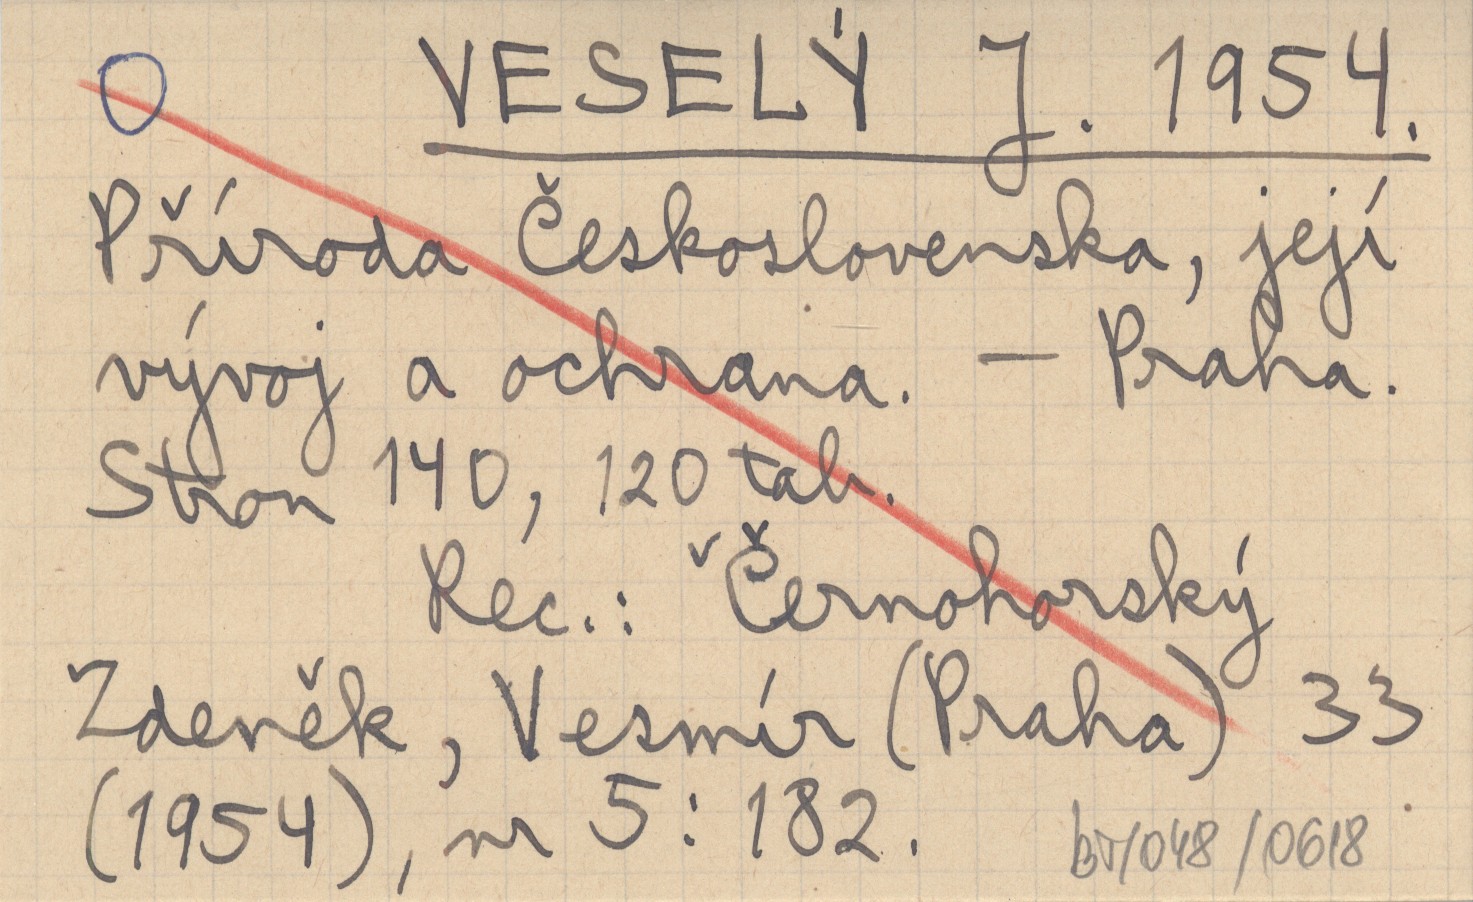 VESELÝ J. 1954.
Příroda Československa, její
vývoj a ochrana. — Praha.
Stron 140, 120 tab.
Rec.: Černohorský
Zdeněk, Vesmír (Praha) 33
(1954), nr 5: 182.
/048/0618